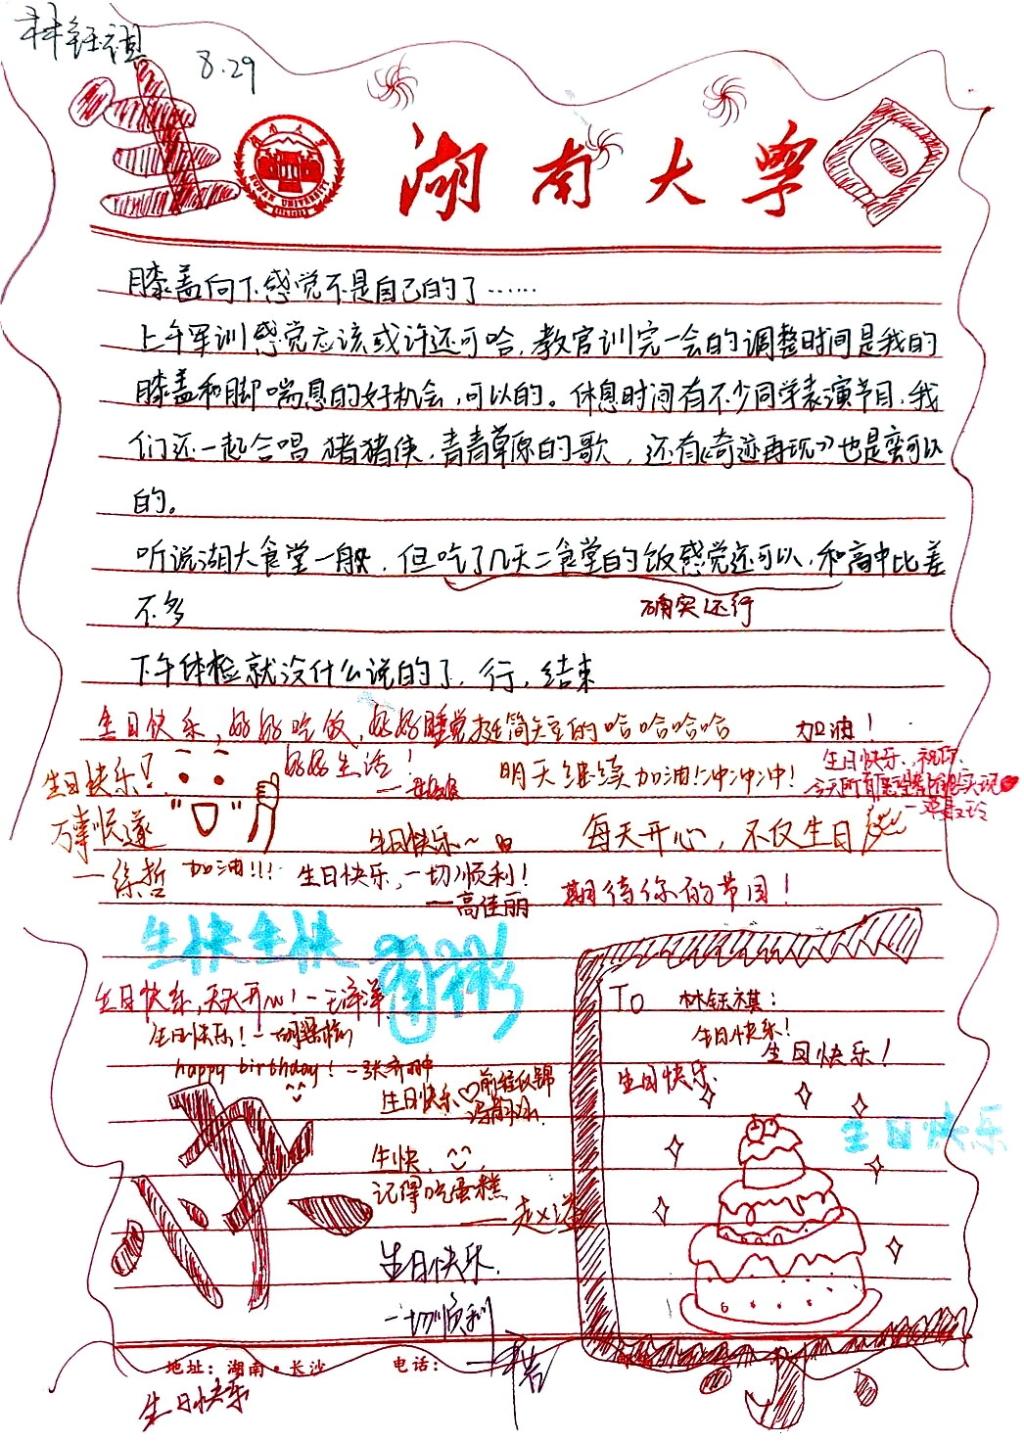 林钰祺
8.29
生 日
湖南大学
HUNAN UNIVERSITY
膝盖向下感觉不是自己的了……
上午军训感觉应该或许还可哈,教官训完一会的调整时间是我的
膝盖和脚喘息的好机会,可以的。休息时间有不少同学表演节目,我
们还一起合唱 猪猪侠,青青草原的歌,还有《奇迹再现》也是蛮可以
的。
听说湖大食堂一般,但吃了几天二食堂的饭感觉还可以,和高中比差
不多
确实还行
下午体检就没什么说的了,行,结束
生日快乐,好好吃饭,好好睡觉
挺简短的哈哈哈哈
加油!
生日快乐!
万事顺遂
—徐哲
好好生活!
明天继续加油!!冲冲冲!
生日快乐,祝你
今天所有愿望都能实现
生日快乐~
每天开心,不仅生日
加油!!!
生日快乐,一切顺利!
—高佳丽
期待你的节目!
生快生快
生日快乐,天天开心!
生日快乐!
happy birthday!
生日快乐
前程似锦
生快,
记得吃蛋糕
生日快乐.
一切顺利
TO 林钰祺:
生日快乐!
生日快乐!
生日快乐.
生日快乐
快
乐
地址:湖南·长沙 电话:
生日快乐